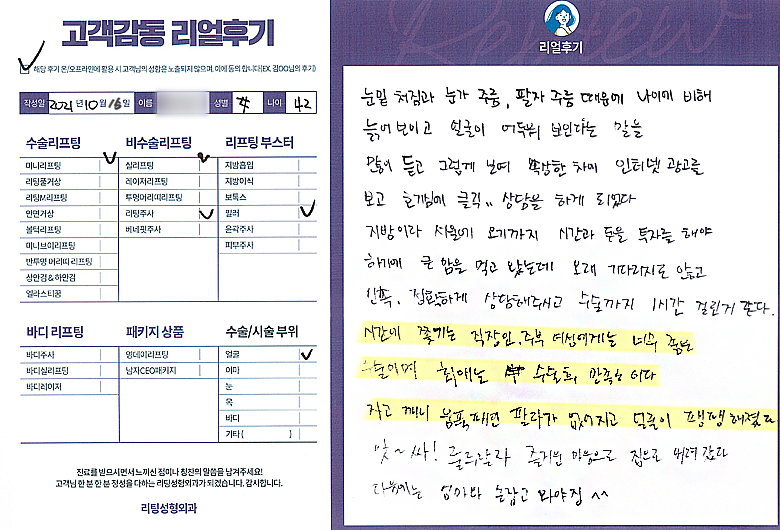 고객감동 리얼후기
해당 후기 온/오프라인에 활용 시 고객님의 성함은 노출되지 않으며, 이에 동의 합니다!(EX. 김OO님의 후기)
작성일 2021년 10월 16일 이름 성별 여 나이 42
수술리프팅
미니리프팅
리팅풀거상
리팅M리프팅
안면거상
볼턱리프팅
미니브이리프팅
반투명 머리띠 리프팅
상안검&하안검
엘라스티꿈
비수술리프팅
실리프팅
레이저리프팅
투명머리띠리프팅
리팅주사
베네핏주사
리프팅 부스터
지방흡입
지방이식
보톡스
필러
윤곽주사
피부주사
바디 리프팅
바디주사
바디실리프팅
바디레이저
패키지 상품
영데이리프팅
남자CEO패키지
수술/시술 부위
얼굴
이마
눈
목
바디
기타( )
진료를 받으시면서 느끼신 점이나 칭찬의 말씀을 남겨주세요!
고객님 한 분 한 분 정성을 다하는 리팅성형외과가 되겠습니다. 감사합니다.
리팅성형외과
Review
리얼후기
눈밑 처짐과 눈가 주름, 팔자 주름 때문에 나이에 비해
늙어보이고 얼굴이 어두워 보인다는 말을
많이 듣고 그렇게 보여 속상한 차에 인터넷 광고를
보고 호기심에 클릭.. 상담을 하게 되었다
지방이라 서울에 오기까지 시간과 돈을 투자를 해야
하기에 큰 맘을 먹고 왔는데 오래 기다리지도 않고
신속, 정확하게 상담해주시고 수술까지 1시간 걸린거 같다.
시간에 쫓기는 직장인, 주부 여성에게는 너무 좋은
수술이며 회복에는 수술도 만족이다
자고 깨니 움푹패인 팔자가 없어지고 얼굴이 팽팽해졌다
앗~싸! 룰루랄라 즐거운 마음으로 집으로 내려갔다
다음에는 엄마와 손잡고 와야징 ^^